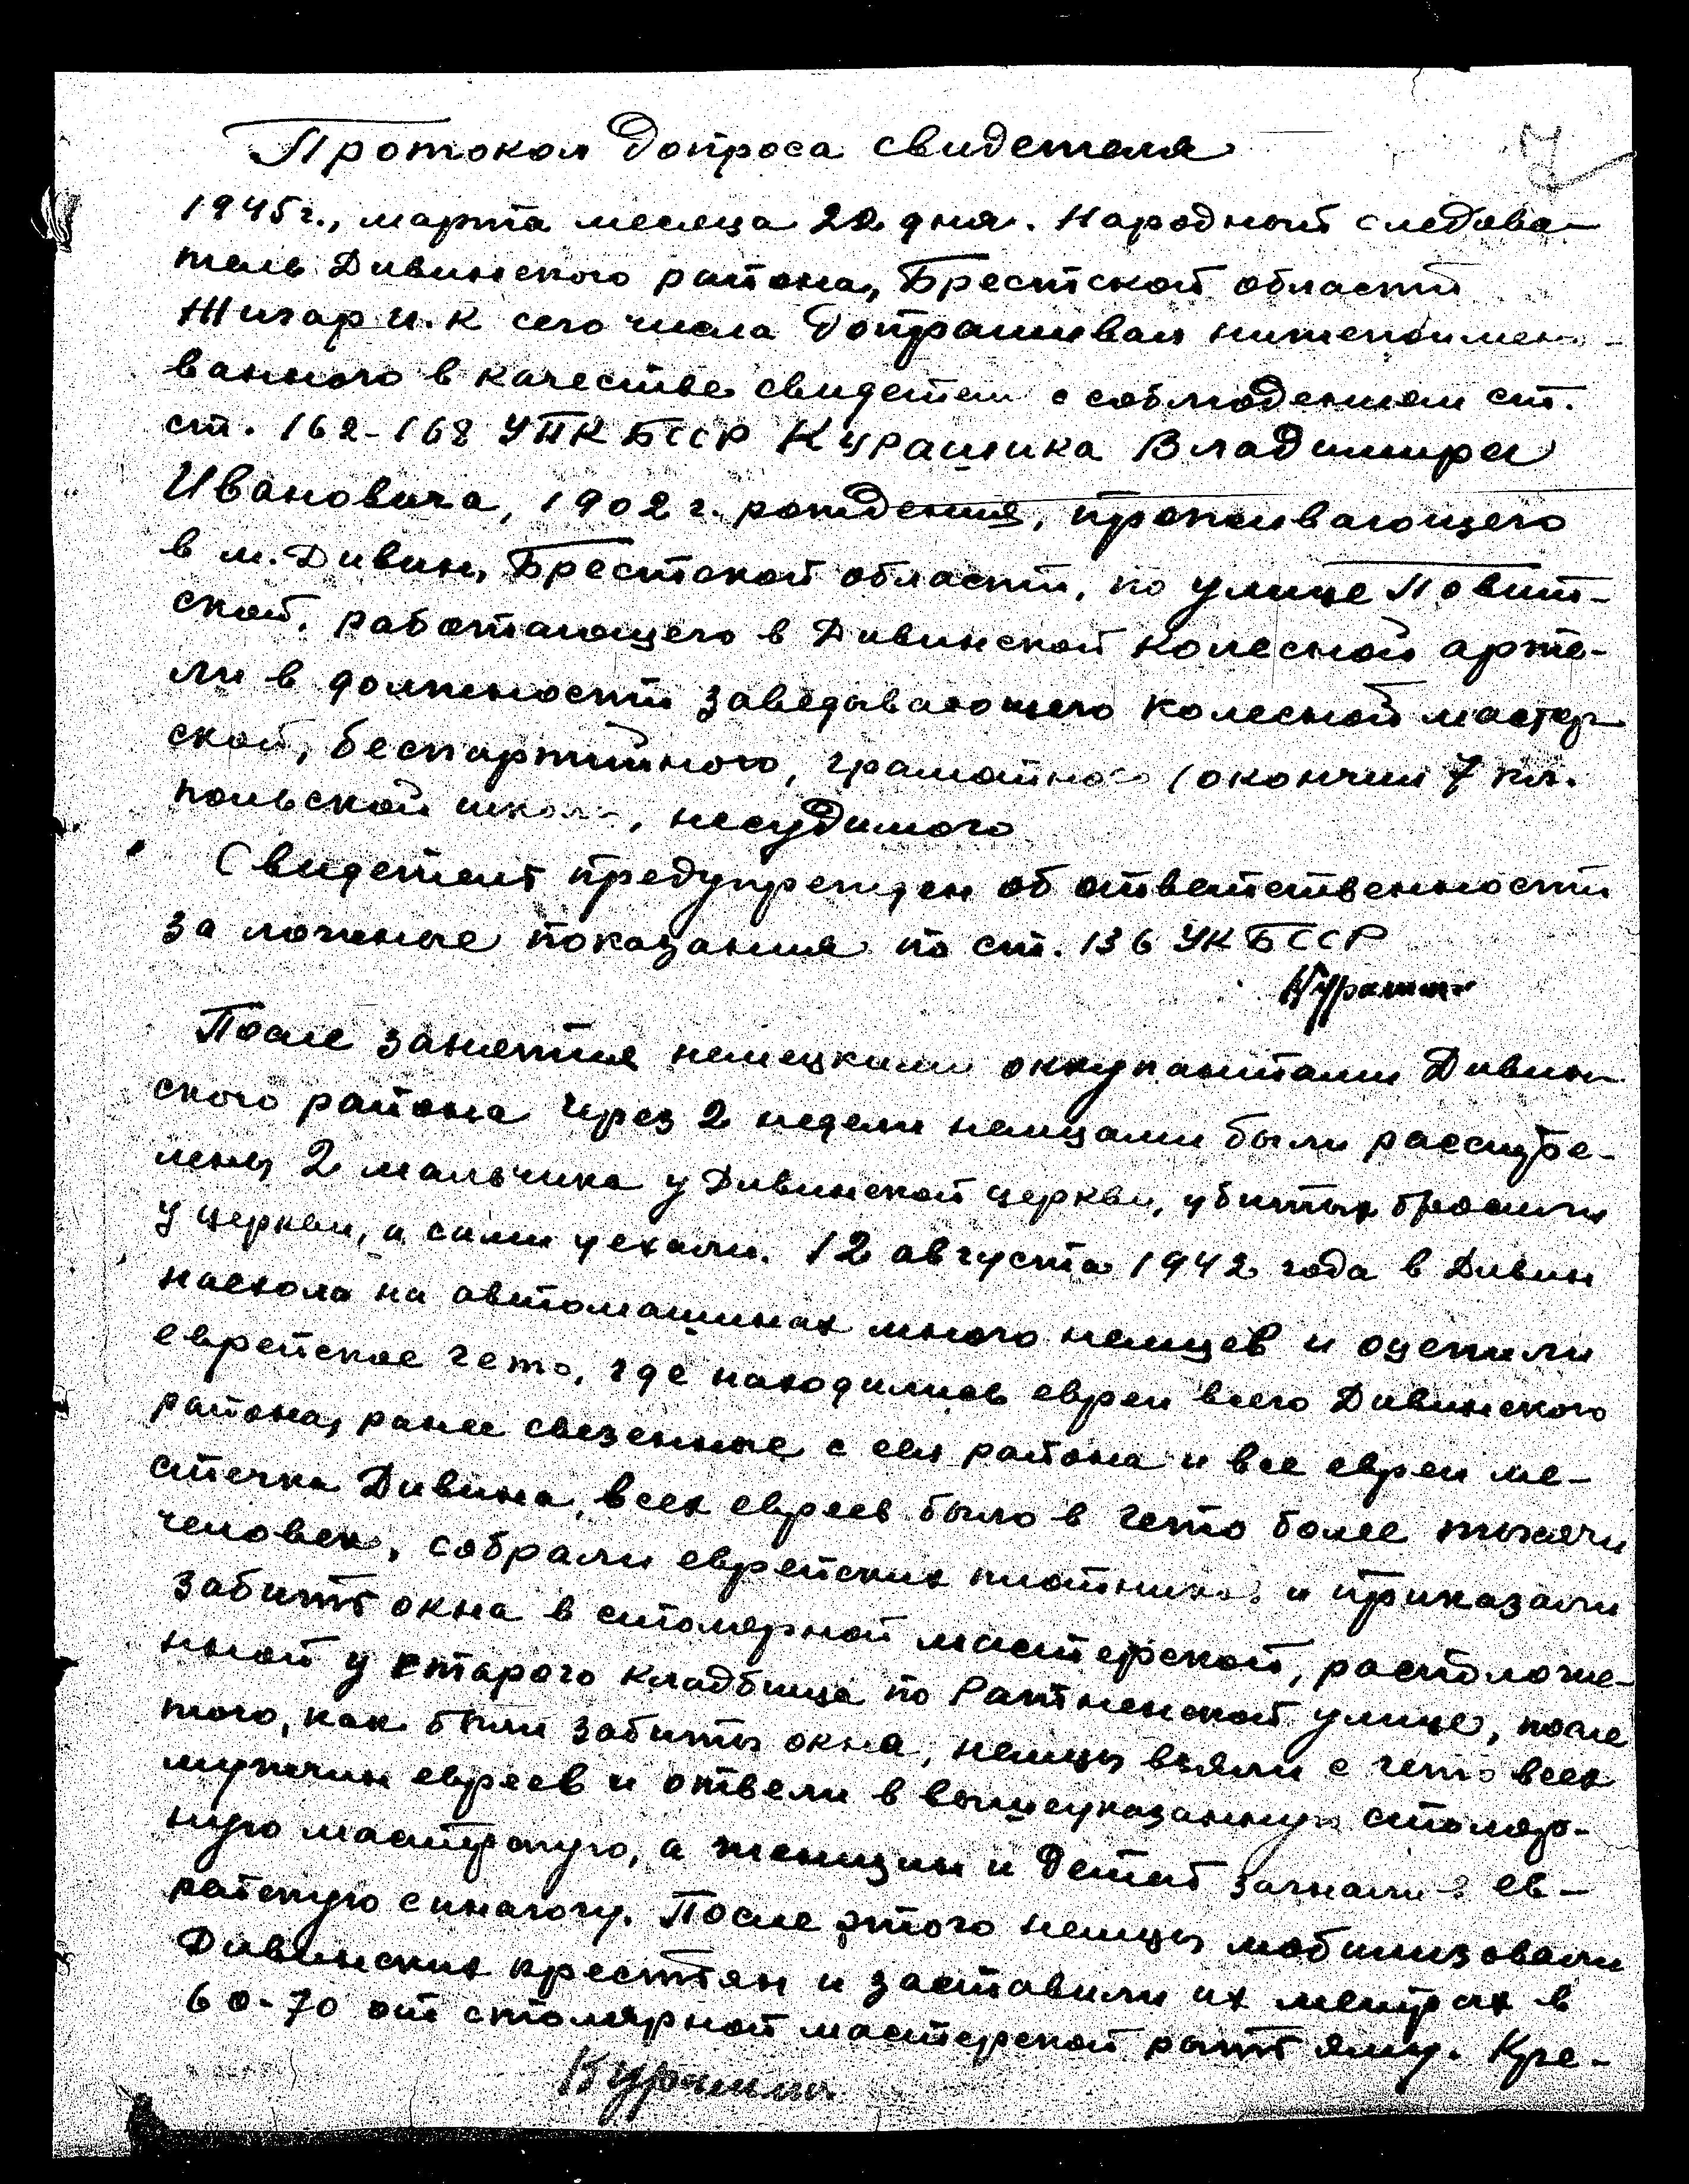 Протокол допроса свидетеля
1945 г., марта месяца 22 дня. Народный следова-
тель Дивинского района, Брестской области
Жигар И.К сего числа допрашивал нижепоимено-
ванного в качестве свидетеля с соблюдением ст.
ст. 162-168 УПК БССР Курашика Владимира
Ивановича, 1902 г. рождения, проживающего
в м. Дивин, Брестской области, по улице Повит-
ской, работающего в Дивинской колесной арте-
ли в должности заведывающего колесной мастер-
ской, беспартийного, грамотного (окончил 7 кл.
польской школы, несудимого
Свидетель предупрежден об ответственности
за ложные показания по ст. 136 УК БССР
После занятия немецкими оккупантами Дивин-
ского района через 2 недели немцами были расстре-
лены 2 мальчика у Дивинской церкви, убитых бросили
у церкви, а сами уехали. 12 августа 1942 года в Дивин
наехола на автомашинах много немцев и оцепили
еврейское гето, где находились евреи всего Дивинского
района, ранее свезенные с сел района и все евреи ме-
стечка Дивина, всех евреев было в гето более тысячи
человек, собрали еврейских плотников и приказали
забить окна в столярной мастерской, расположе-
нной у старого кладбища по Ратненской улице, после
того, как были забиты окна, немцы взяли с гето всех
мужчин евреев и отвели в вышеуказанную столяр-
ную мастерскую, а женщин и детей загнали в ев-
рейскую синагогу. После этого немцы мобилизовали
Дивинских крестьян и заставили их метрах в
60-70 от столярной мастерской рыть яму. Кре-